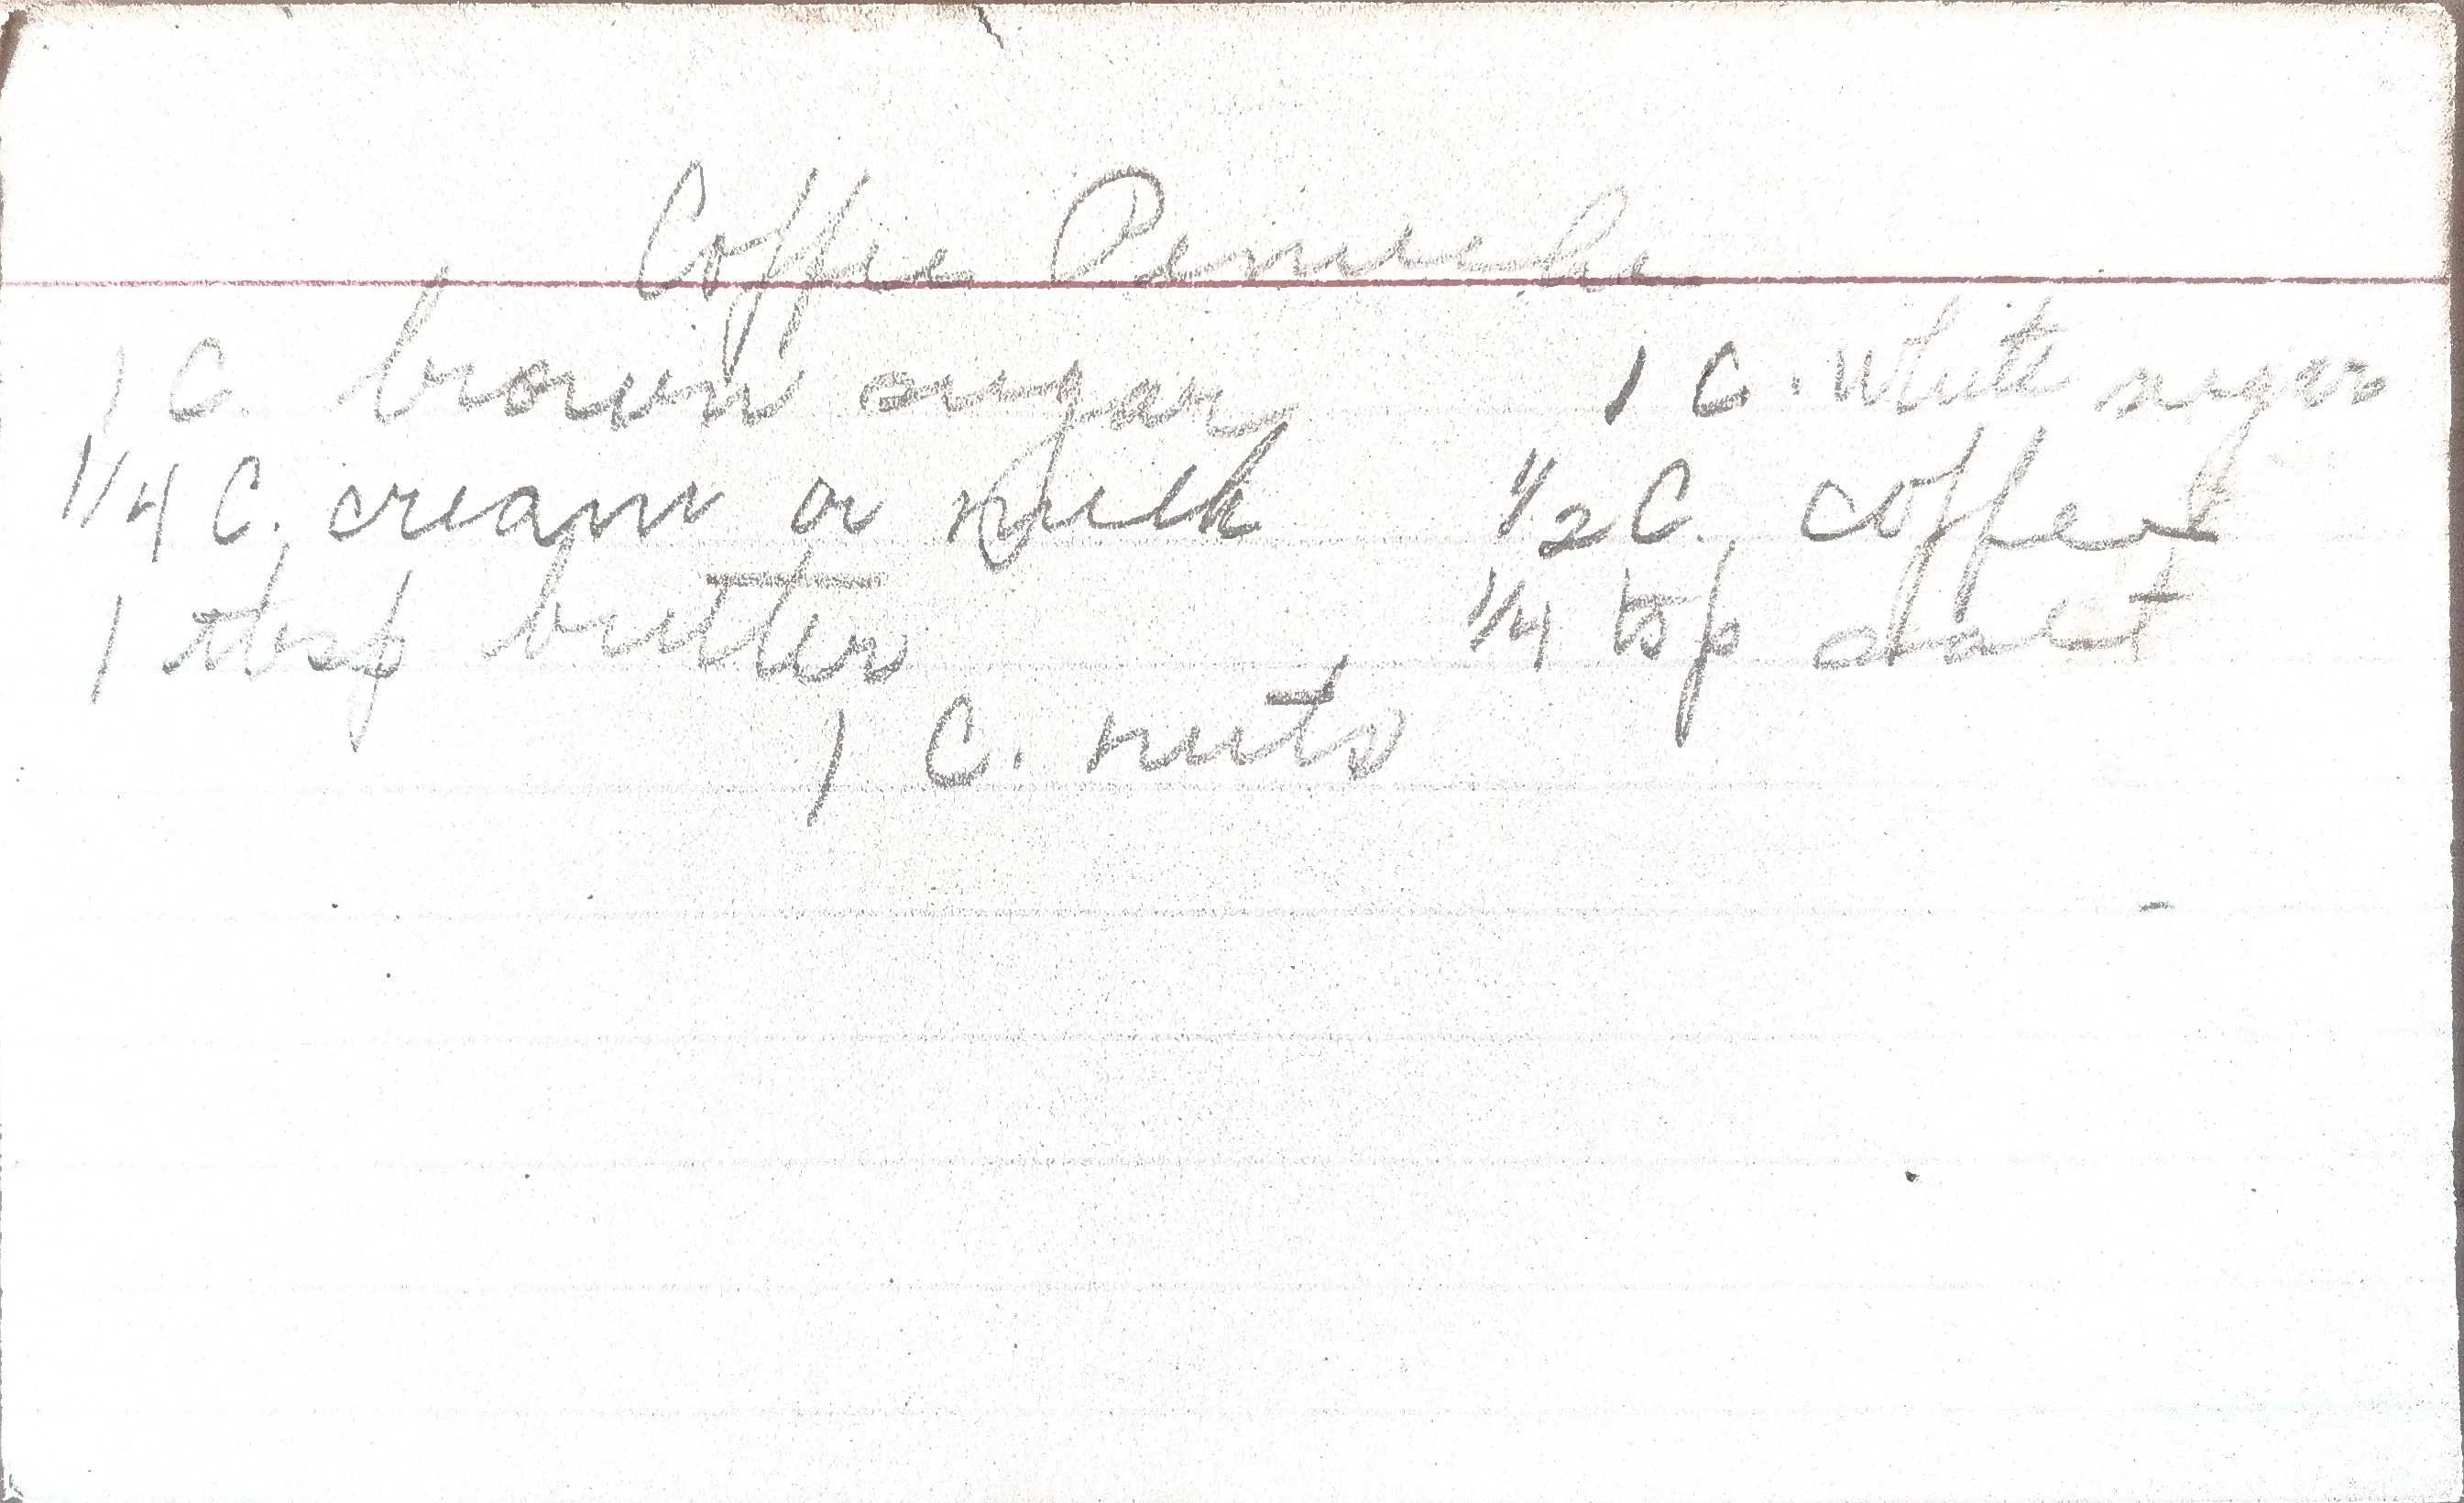 Coffee Penuche
1 C. brown sugar 1 C. white sugar
1/4 C. cream or milk 1/2 C. coffee
1 tbsp butter 1/4 tsp salt
1 C. nuts